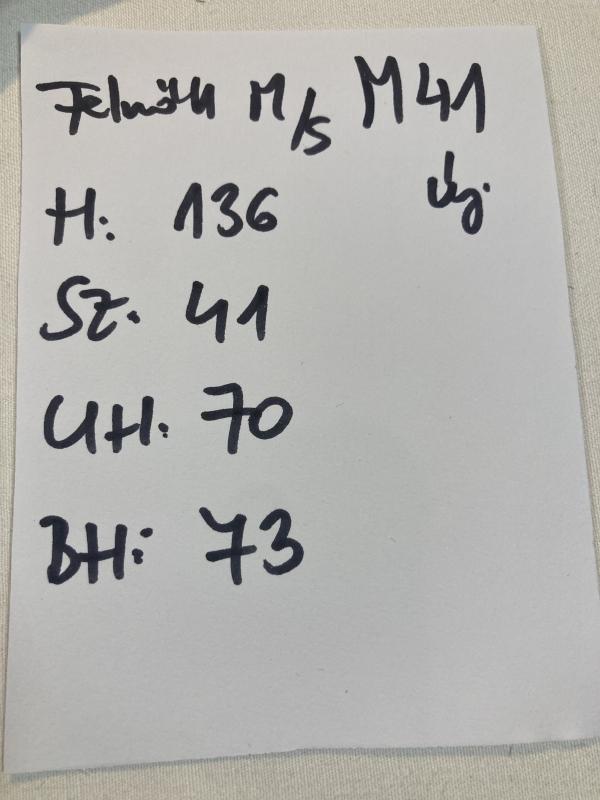 Felnőtt M/S M41
H: 136
Sz. 41
UH: 70
BH: 73